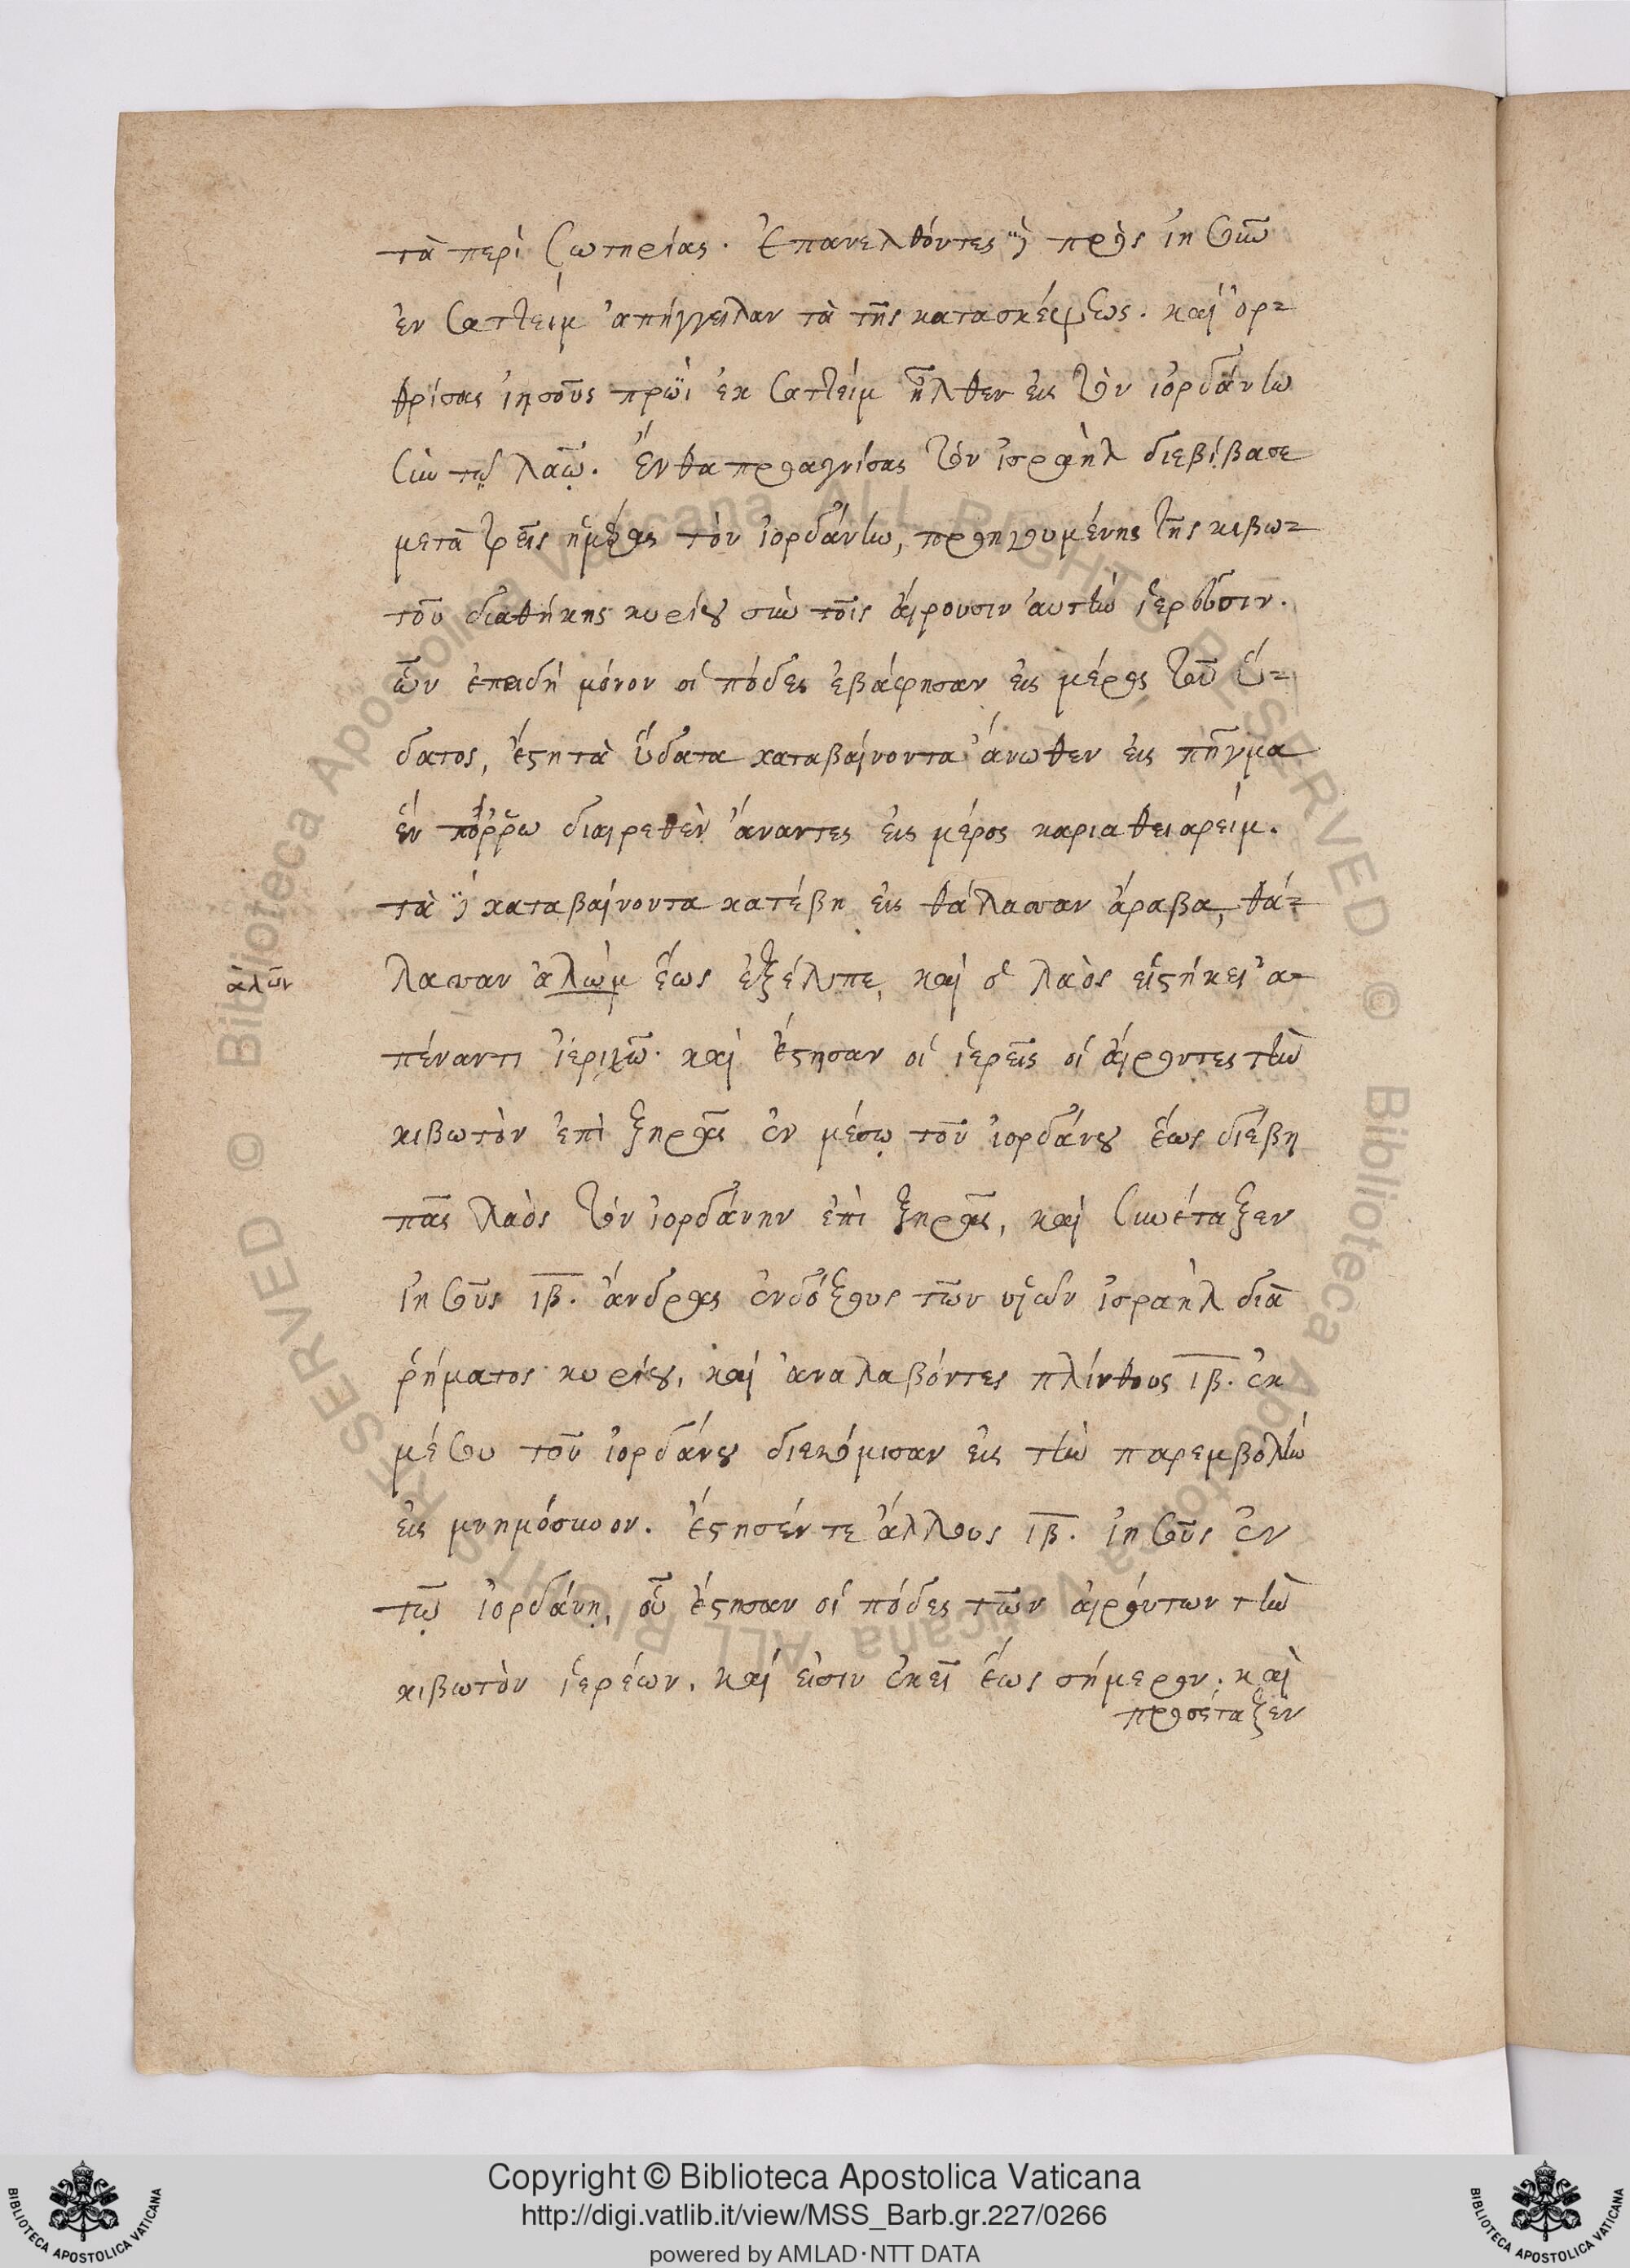 τὰ περὶ σωτηρίας. ἐπανελθόντες δὲ πρὸς ἰησοῦν
ἐν σαττεὶμ ἀπήγγειλαν τὰ τῆς κατασκέψεως. καὶ ὀρ=
θρίσας ἰησοῦς πρωῒ ἐκ σαττείμ ἦλθεν εἰς τὸν ἰορδάνην
σὺν τῷ λαῷ. ἔνθα προαγνίσας τὸν ἰσραὴλ διεβίβασε
μετὰ τρεῖς ἡμέρας τὸν ἰορδάνην, προηγουμένης τῆς κιβω=
τοῦ διαθήκης κυρίου σὺν τοῖς αἴρουσιν αὐτὴν ἱερεῦσιν.
ὧν ἐπειδὴ μόνον οἱ πόδες ἐβάφησαν εἰς μέρος τοῦ ὕ=
δατος, ἔστη τὰ ὕδατα καταβαίνοντα ἄνωθεν εἰς πῆγμα
ἓν πόῤῥω διαιρεθὲν ἄναντες εἰς μέρος καριαθειαρείμ.
τὰ δὲ καταβαίνοντα κατέβη εἰς θάλασσαν ἄραβα, θά=
λασσαν ἁλὼμ ἕως ἐξέλιπε, καὶ ὁ λαὸς εἱστήκει ἀ=
ἁλῶν
πέναντι ἱεριχῶ. καὶ ἔστησαν οἱ ἱερεῖς οἱ αἴροντες τὴν
κιβωτὸν ἐπὶ ξηρᾶς ἐν μέσῳ τοῦ ἰορδάνου ἕως διέβη
πᾶς λαὸς τὸν ἰορδάνην ἐπὶ ξηρᾶς, καὶ συνέταξεν
ἰησοῦς ιβ. ἄνδρας ἐνδόξους τῶν υἱῶν ἰσραὴλ διὰ
ῥήματος κυρίου, καὶ ἀναλαβόντες πλίνθους ιβ. ἐκ
μέσου τοῦ ἰορδάνου διεκόμισαν εἰς τὴν παρεμβολὴν
εἰς μνημόσυνον. ἔστησέν τε ἄλλους ιβ. ἰησοῦς ἐν
τῷ ἰορδάνῃ, οὗ ἔστησαν οἱ πόδες τῶν αἰρόντων τὴν
κιβωτὸν ἱερέων. καὶ εἰσὶν ἐκεῖ ἕως σήμερον. καὶ
προσέταξεν
Copyright © Biblioteca Apostolica Vaticana
http://digi.vatlib.it/view/MSS_Barb.gr.227/0266
powered by AMLAD·NTT DATA